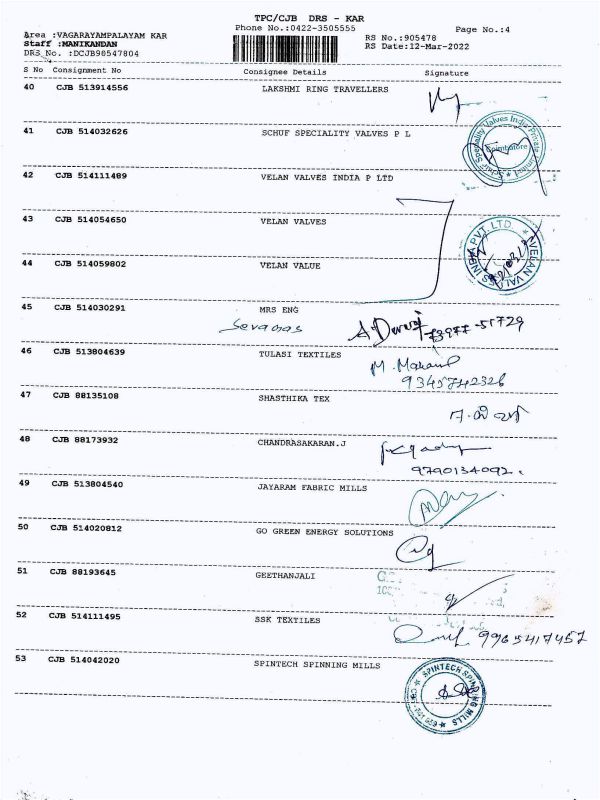 TPC/CJB DRS - KAR
Phone No.:0422-3505555
Page No.:4
Area :VAGARAYAMPALAYAM KAR
RS No.:905478
Staff :MANIKANDAN
RS Date:12-Mar-2022
DRS No. :DCJB98547804
S No Consignment No Consignee Details Signature
40 CJB 513914556 LAKSHMI RING TRAVELLERS
41 CJB 514032626 SCHUF SPECIALITY VALVES P L
Schuf Speciality Valves India Private Limited
Coimbatore
42 CJB 514111489 VELAN VALVES INDIA P LTD
43 CJB 514054650 VELAN VALVES
VELAN VALVES INDIA PVT. LTD.
44 CJB 514059802 VELAN VALUE
45 CJB 514030291 MRS ENG
46 CJB 513804639 TULASI TEXTILES
9345742326
47 CJB 88135108 SHASTHIKA TEX
48 CJB 88173932 CHANDRASAKARAN.J
9790134092.
49 CJB 513804540 JAYARAM FABRIC MILLS
50 CJB 514020812 GO GREEN ENERGY SOLUTIONS
51 CJB 88193645 GEETHANJALI
52 CJB 514111495 SSK TEXTILES
9965417457
53 CJB 514042020 SPINTECH SPINNING MILLS
SPINTECH SPINNING MILLS